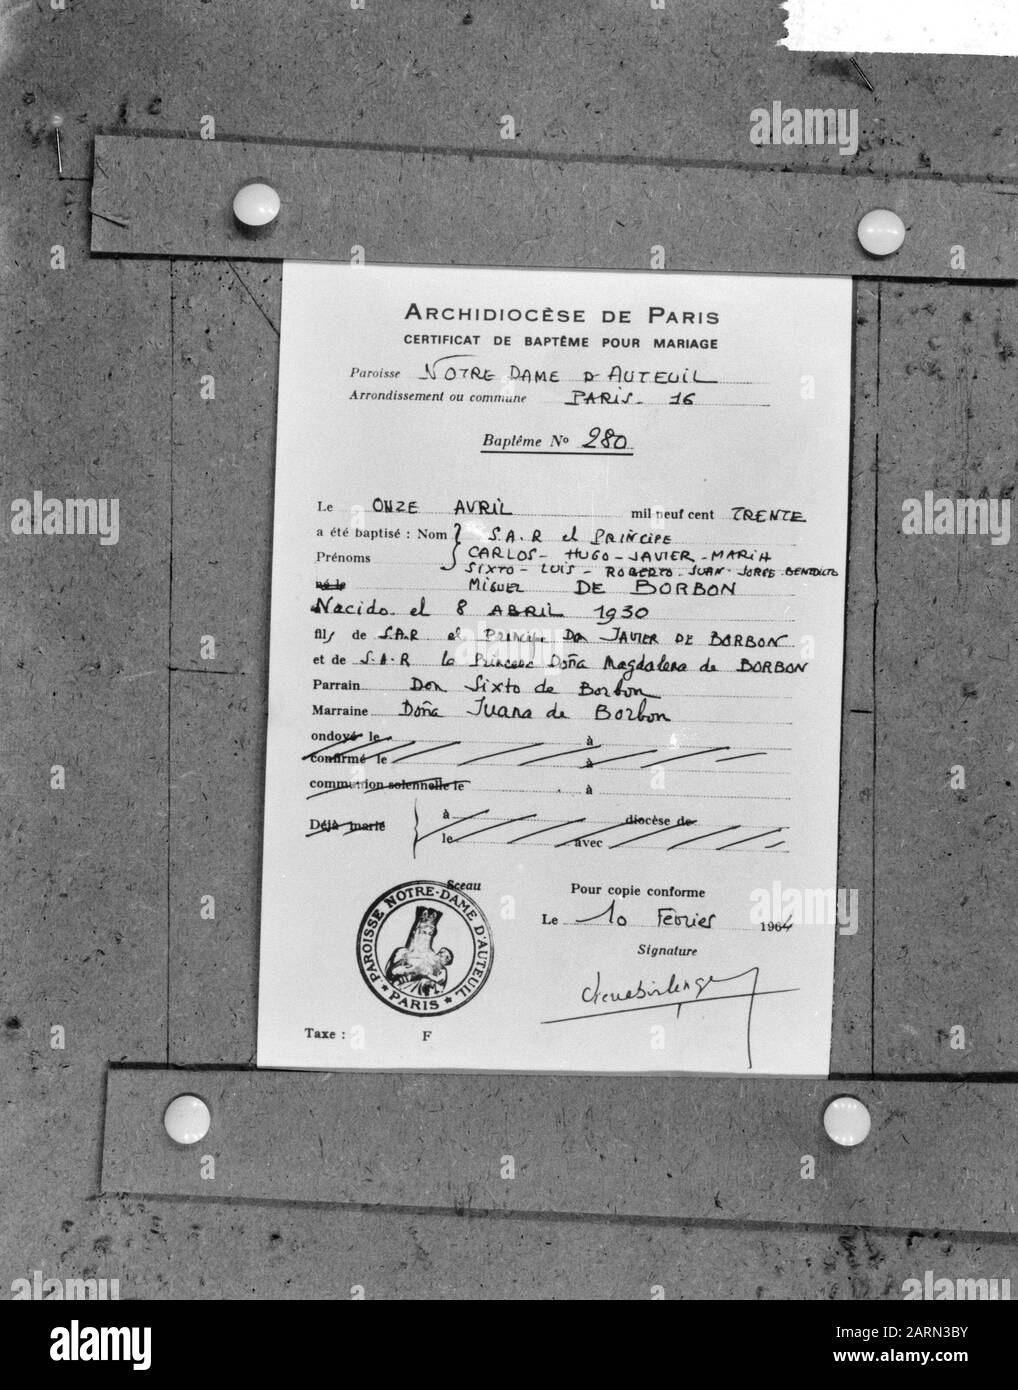 ARCHIDIOCÈSE DE PARIS
CERTIFICAT DE BAPTÊME POUR MARIAGE
Paroisse NOTRE DAME D'AUTEUIL
Arrondissement ou commune PARIS - 16
Baptême No 280
Le ONZE AVRIL mil neuf cent TRENTE
a été baptisé : Nom S.A.R el PRINCIPE
Prénoms CARLOS - HUGO - JAVIER - MARIA
SIXTO - LUIS - ROBERTO - JUAN - JORGE BENEDICTO
né le MIGUEL DE BORBON
Nacido el 8 ABRIL 1930
fils de S.A.R el Principe Don JAVIER DE BORBON
et de S.A.R la Princesa Doña Magdalena de BORBON
Parrain Don Sixto de Borbon
Marraine Doña Juana de Borbon
ondoyé le à
confirmé le à
communion solennelle le à
Déjà marié à diocèse de
le avec
Sceau
Pour copie conforme
Le 10 Février 1964
Signature
PAROISSE NOTRE-DAME D'AUTEUIL
★ PARIS ★
Taxe : F
alamy
a
alamy
Image ID: 2ARN3BY
www.alamy.com